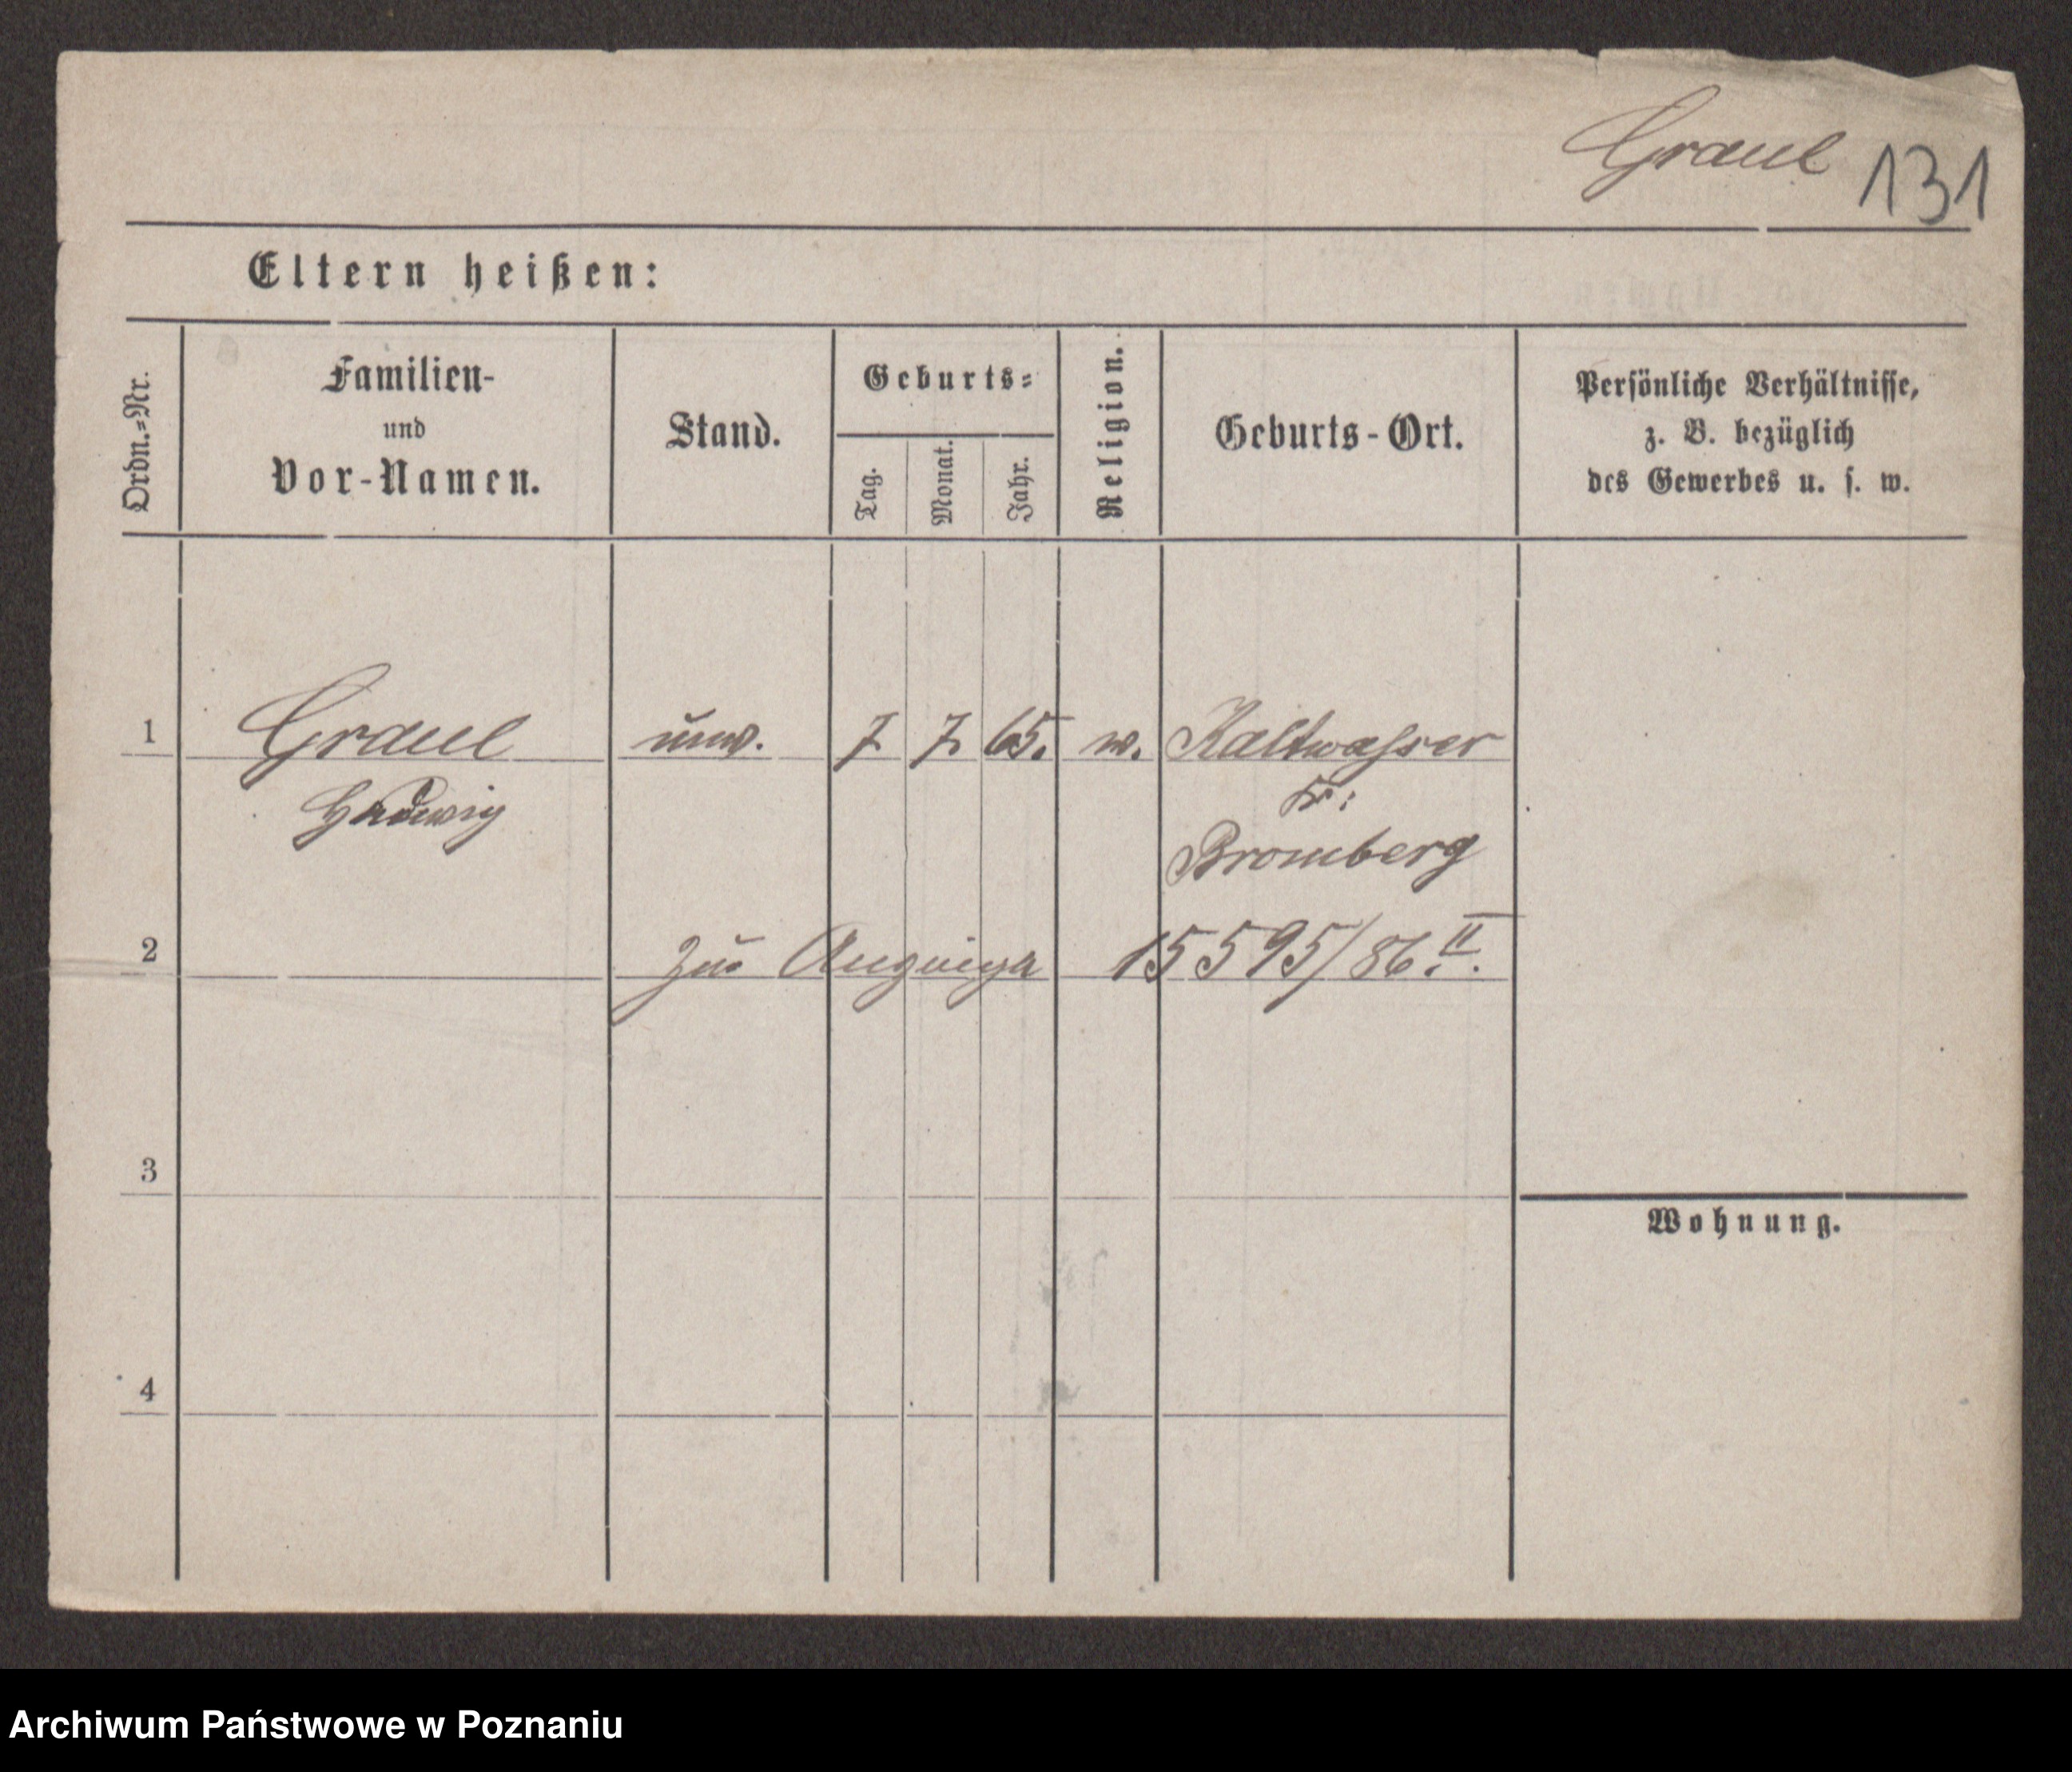 Graul 131
Eltern heißen:
Ordn.=Nr.
Familien-
und
Vor-Namen.
Stand.
Geburts=
Tag.
Monat.
Jahr.
Religion.
Geburts-Ort.
Persönliche Verhältnisse,
z. B. bezüglich
des Gewerbes u. s. w.
1 Graul unv. 7 7 65. w. Kaltwasser
Hedwig
Kr:
Bromberg
2 Zur 15595/86. II.
3
Wohnung.
4
Archiwum Państwowe w Poznaniu